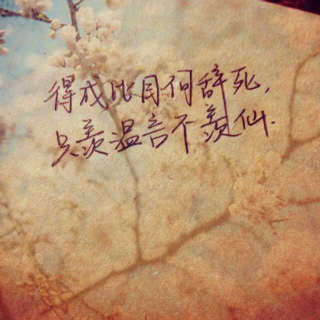 得成比目何辞死,
只羡温言不羡仙.